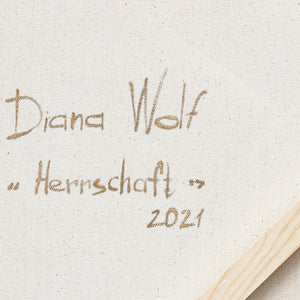 Diana Wolf
„ Herrschaft "
2021